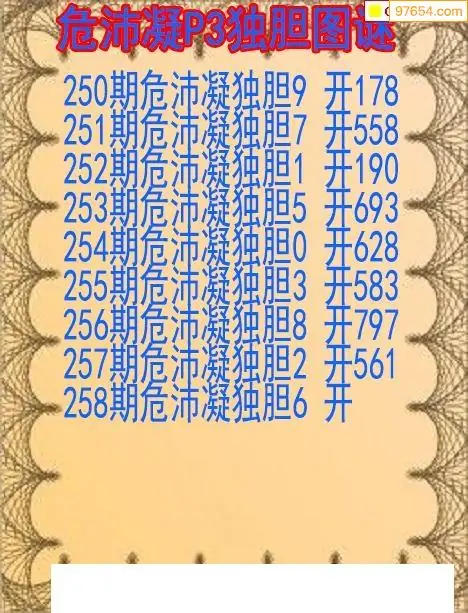 97654.com
危沛凝P3独胆图谜
250期危沛凝独胆9 开178
251期危沛凝独胆7 开558
252期危沛凝独胆1 开190
253期危沛凝独胆5 开693
254期危沛凝独胆0 开628
255期危沛凝独胆3 开583
256期危沛凝独胆8 开797
257期危沛凝独胆2 开561
258期危沛凝独胆6 开